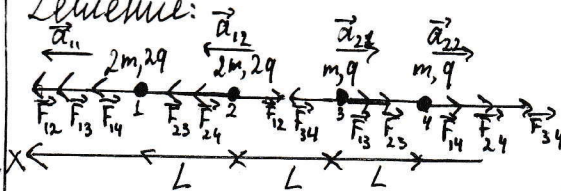 Решение:
a⃗₁₁ a⃗₁₂ a⃗₂₁ a⃗₂₂
2m, 2q 2m, 2q m, q m, q
1 2 3 4
F⃗₁₂ F⃗₁₃ F⃗₁₄ F⃗₂₃ F⃗₂₄ F⃗₁₂ F⃗₃₄ F⃗₁₃ F⃗₂₃ F⃗₁₄ F⃗₂₄ F⃗₃₄
X L L L